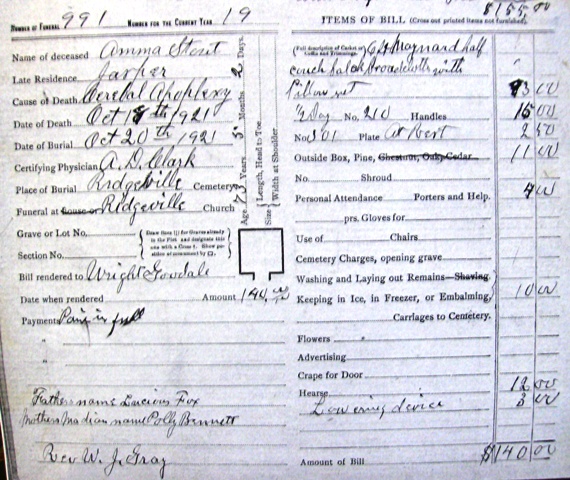 NUMBER OF FUNERAL 991 NUMBER FOR THE CURRENT YEAR 19
Name of deceased Amma Stout
Late Residence Jasper
Cause of Death Cerebral Apoplexy
Date of Death Oct 18th 1921
Date of Burial Oct 20th 1921
Certifying Physician A. D. Clark
Place of Burial Ridgeville Cemetery
Funeral at house or Ridgeville Church
Age 73 Years 5 Months 2 Days.
Size { Length, Head to Toe
Width at Shoulder
Grave or Lot No.
Section No.
Bill rendered to Wright Goodale
Date when rendered Amount 140.00
Payments Paid in full
"
"
"
Fathers name Lucious Fox
Mothers Madian name Polly Bennett
Rev W. J. Gray
$155.00
ITEMS OF BILL (Cross out printed items not furnished)
(Full description of Casket or Coffin and Trimmings. Maynard half
couch Broadcloth with
Pillow set 93 00
1/2 Doz No. 210 Handles 15 00
No. 301 Plate At Rest 2 50
Outside Box, Pine, Chestnut, Oak, Cedar 11 00
No. Shroud
Personal Attendance Porters and Help. 4 00
prs. Gloves for
Use of Chairs
Cemetery Charges, opening grave
Washing and Laying out Remains—Shaving
Keeping in Ice, in Freezer, or Embalming, 10 00
Carriages to Cemetery.
Flowers
Advertising
Crape for Door
Hearse 12 00
Lowering device 3 00
Amount of Bill $140 00